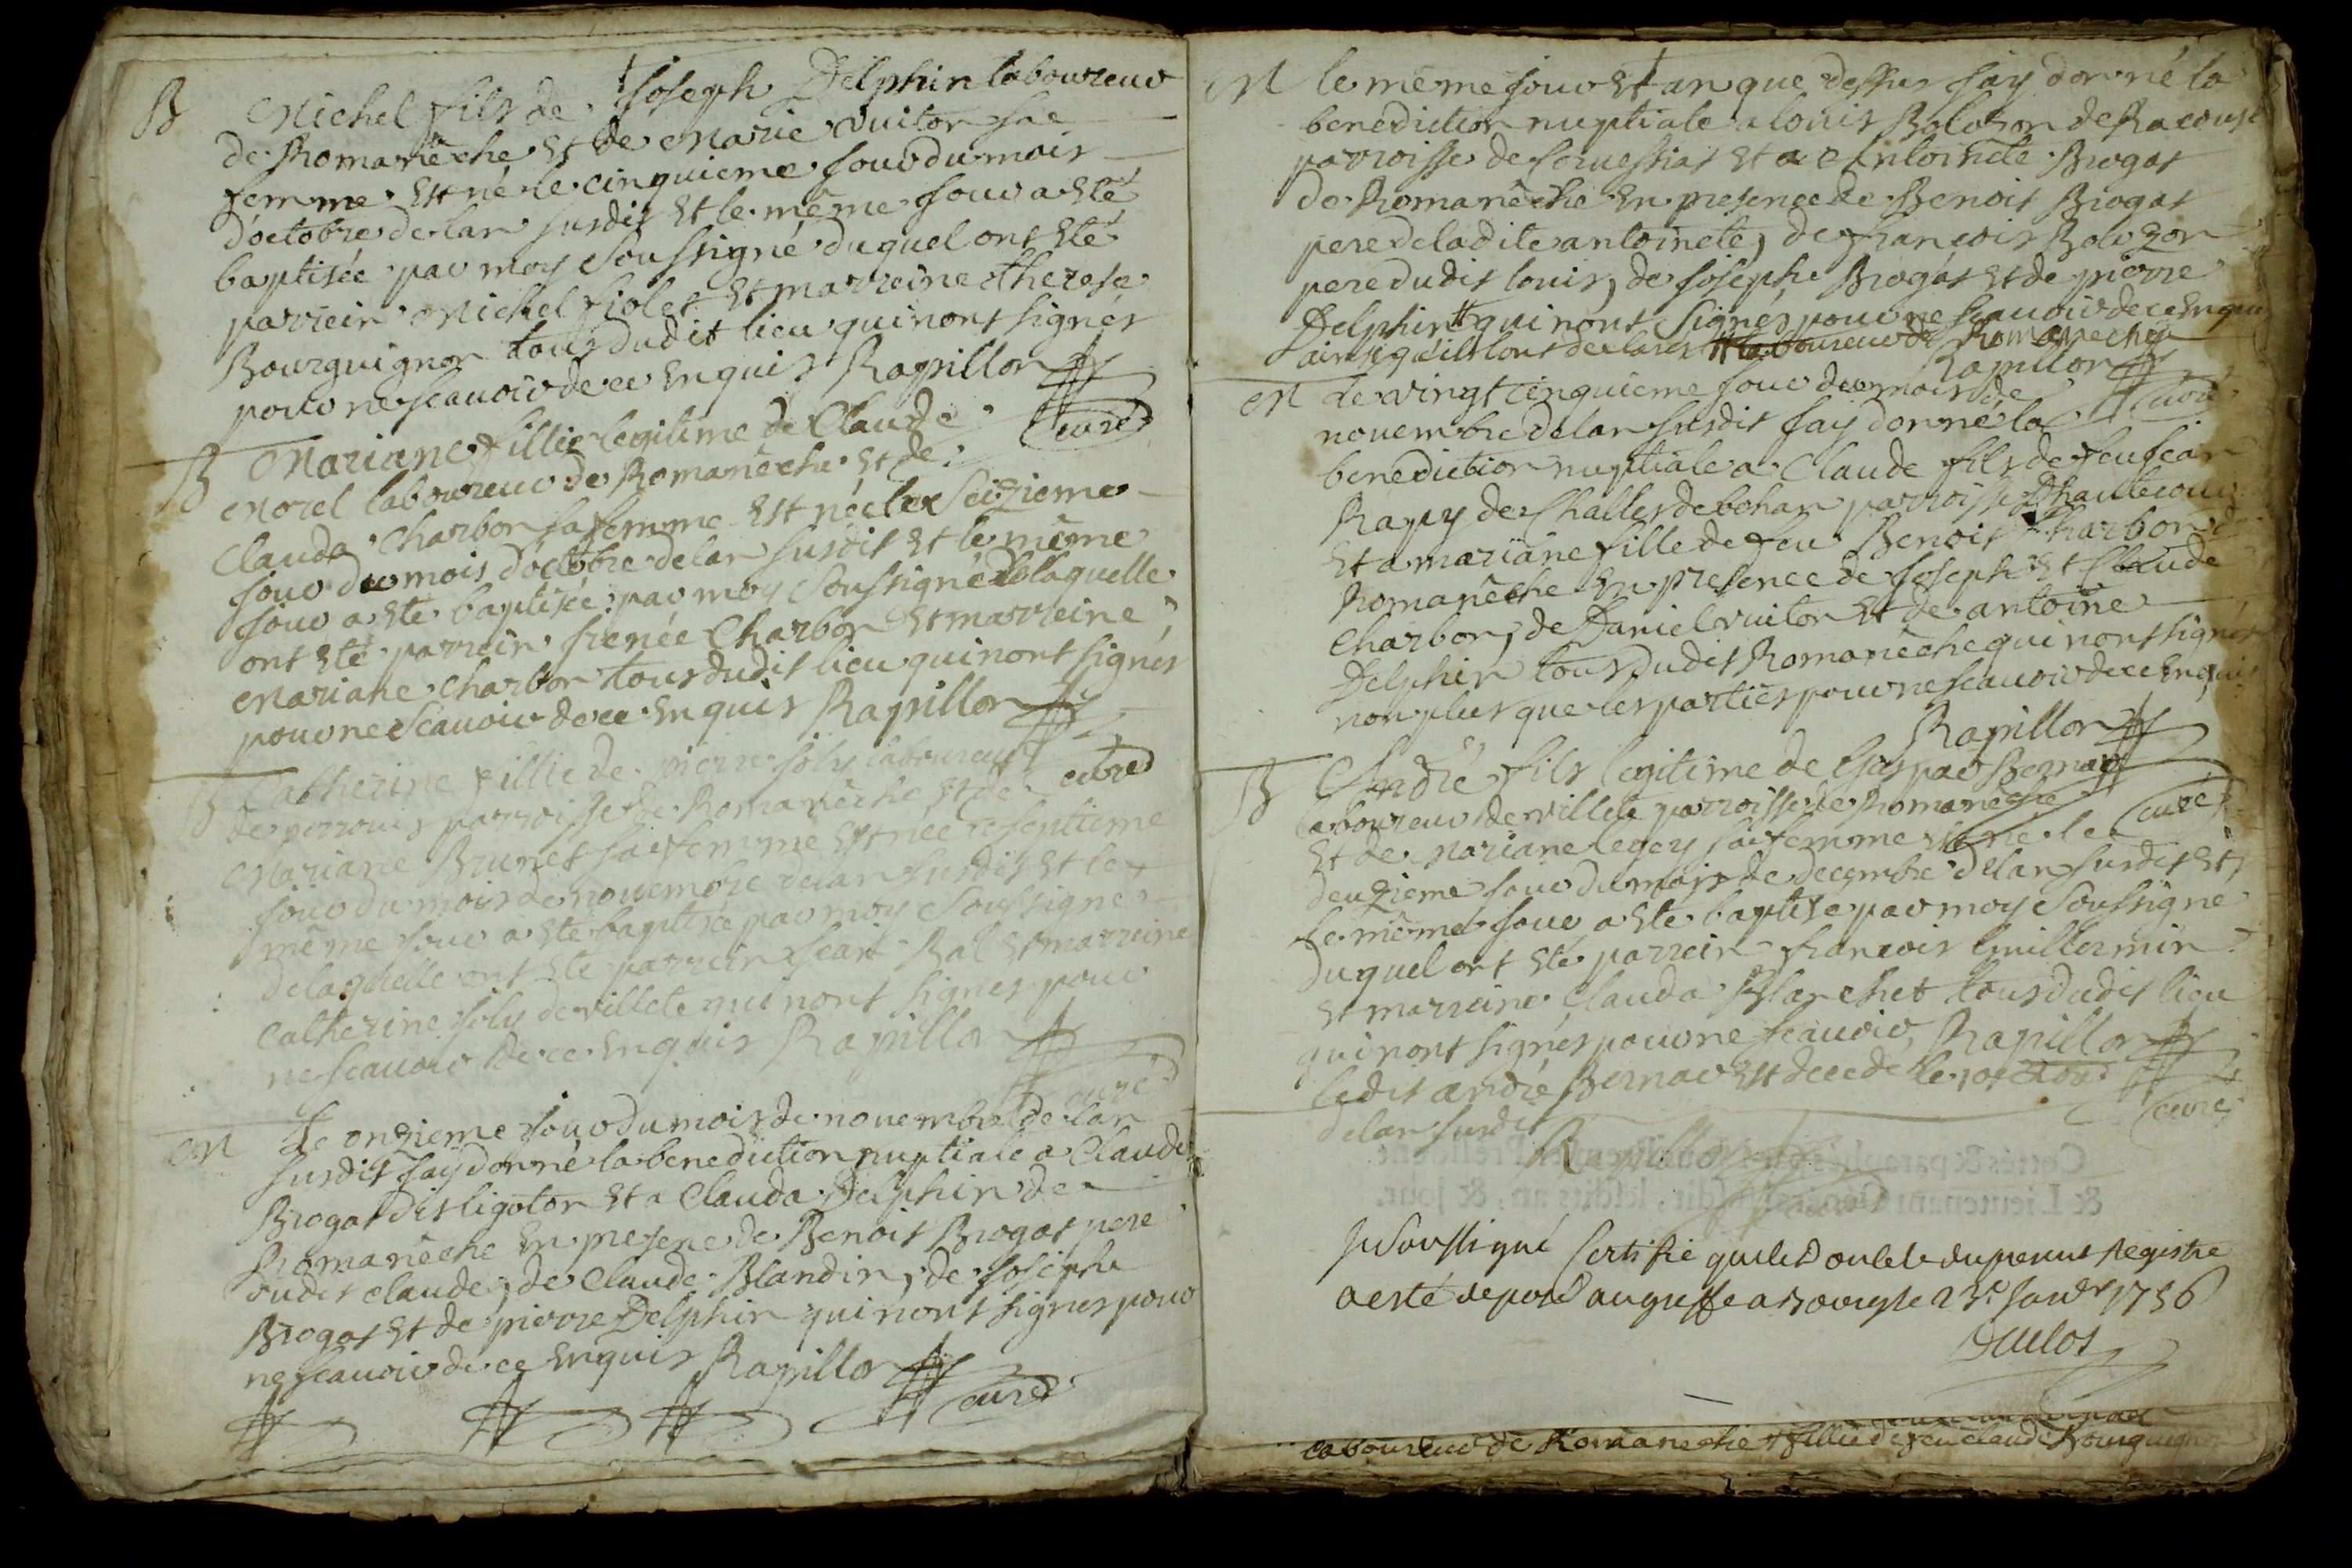 B Michel fils de Joseph Delphin laboureur
de Romanêche et de Marie Vuiton sae
femme est né le cinquieme jour du mois
d'octobre de lan susdit et le même jour a esté
baptisée par moy soussigné duquel ont esté
parrein Michel fiolet et marreine therese
Bourguignon tous dudit lieu qui nont signés
pour ne scauoir de ce enquis Rapillon
curé
B Mariane fillie legitime de Claude
Morel laboureur de Romanêche et de
Clauda Charbon sa femme est née le seizieme
jour du mois d'octobre de lan susdit et le même
jour a esté baptisée par moy soussigné de laquelle
ont esté parrein Charbon et marreine
Mariane Charbon tous dudit lieu qui nont signés
pour ne scauoir de ce enquis Rapillon
curé
B Catherine fillie de pierre joly laboureur
de parroisse de Romanêche et de
Mariane Brunet sa femme est née le septieme
jour du mois de nouembre de lan susdit et le
même jour a esté baptisée par moy soussigné
de laquelle ont esté parrein jean Ral et marreine
Catherine joly de villete qui nont signés pour
ne scauoir de ce enquis Rapillon
curé
M Le onzieme jour du mois de nouembre de lan
susdit jay donné la benediction nuptiale a Claude
Brogat dit ligoton et a Clauda Delphin de
Romanêche en presence de Benoit Brogat pere
dudit claude, de Claude Blandin, de Joseph
Brogat et de pierre Delphin qui nont signés pour
ne scauoir de ce enquis Rapillon
curé
M le même jour et an que dessus jay donné la
benediction nuptiale a louis Bolozon de Racouse
parroisse de et a Antoinete Brogat
de Romanêche en presence de Benoit Brogat
pere de ladite antoinete, de françois Bolozon
pere dudit louis, de Joseph Brogat et de pierre
Delphin qui nont signés pour ne scauoir de ce enquis
ainsi quils lont declarés laboureur de Romanêche
Rapillon
curé
M Le vingt cinquieme jour du mois de
nouembre de lan susdit jay donné la
benediction nuptiale a Claude fils de feu jean
Rapy de Challes de bohan parroisse d'hautecour
et a mariane fille de feu Benoit Charbon de
Romanêche en presence de Joseph et Claude
Charbon, de Daniel vuiton et de antoine
Delphin tous dudit Romanêche qui nont signés
non plus que les parties pour ne scauoir de ce enquis
Rapillon
curé
B André fils legitime de Gaspar Bernar
laboureur de villete parroisse de Romanêche
et de Mariane legey sa femme est né le
deuzieme jour du mois de decembre de lan susdit et
le même jour a esté baptisé par moy soussigné
duquel ont esté parrein françois Guillermin
et marreine Clauda Blanchet tous dudit lieu
qui nont signés pour ne scauoir, Rapillon
curé
ledit andré Bernar est decedé le
de lan susdit
Rapillon
Je soussigné Certifie que le double du present Registre
a esté deposé au greffe a Bourg le 23e Janvr 1756
laboureur de Romaneche & fillie de feu claude Bourguignon